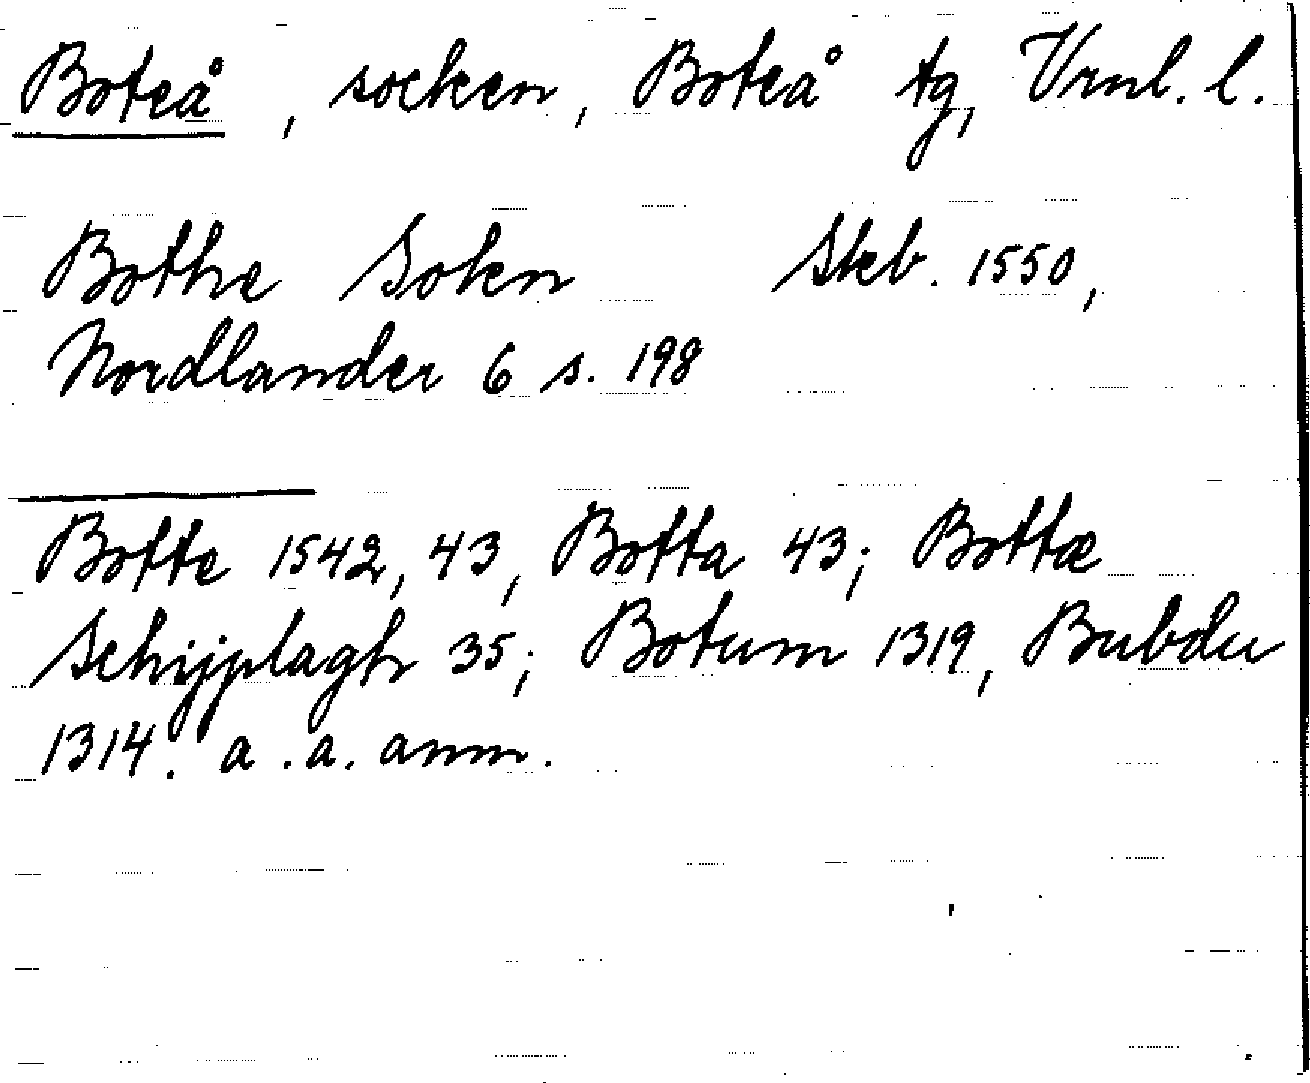 Boteå, socken, Boteå tg, Vrnl. l.
Bothe Sokn Skb. 1550,
Nordlander 6 s. 198
Botte 1542, 43, Botta 43; Bottæ
Schijplagh 35; Botum 1319, Bubdu
1314. a.a. anm.